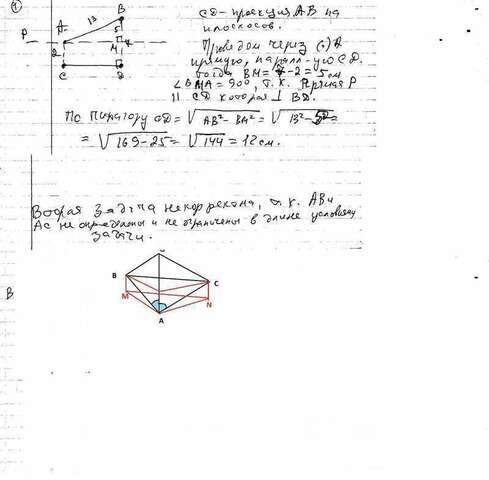 1
A 13 B
P 5
2 M
C D
CD - проекция AB на
плоскость.
Проведём через (·) A
прямую, паралл-ую CD.
тогда BM = 7-2 = 5 см
∠BMA = 90°, т.к. прямая P
|| CD которая ⊥ BD.
По Пифагору CD = √AB² - BM² = √13² - 5² =
= √169-25 = √144 = 12 см.
Вторая задача некорректна, т.к. AB и
AC не определены и не ограничены в длине условием
задачи.
B
B C
M N
A